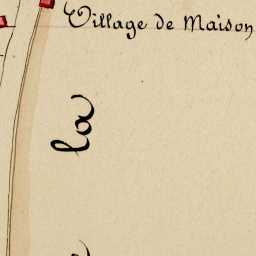 Village de Maison
la